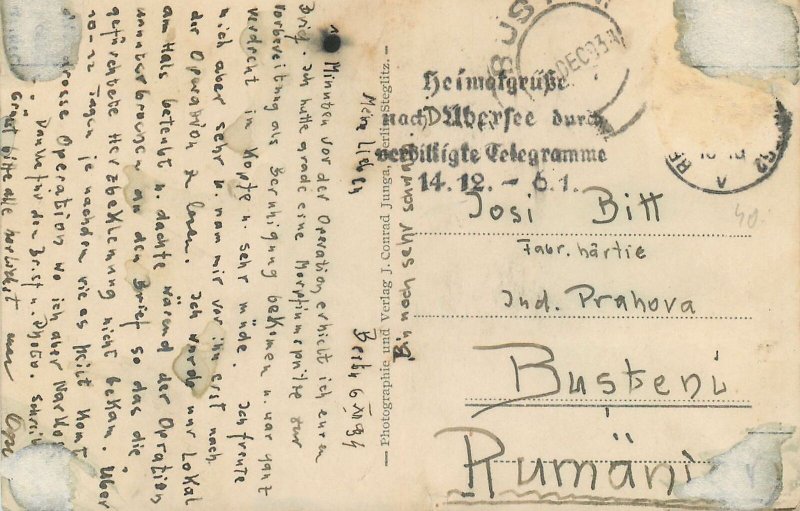 Berlin 6 XII 34
Mein Lieber
10 Minuten vor der Operation erhielt ich euren
Brief. Ich hatte grade eine Morphiumspritze zur
Vorbereitung als Beruhigung bekommen u. war ganz
verdreht im Kopfe u. sehr müde. Ich freute
mich aber sehr u. nam mir vor ihn erst nach
der Operation zu lesen. Ich wurde nur Lokal
am Hals betäubt u. dachte wärend der Opration
ununterbrochen an den Brief so das die
gefürchtete Herzbeklemung nicht bekam. Über
10-12 Tagen je nachdem wie es heilt komt
grosse Operation wo ich aber
Danke für den Brief u. Photo.
Grüst bitte alle herzlichst
Bin noch sehr schwach
— Photographie und Verlag J. Conrad Junga, Berlin-Steglitz. —
BUSTENI
DEC 934
Heimatgrüße
nach Übersee durch
verbilligte Telegramme
14.12. - 6.1.
40.
Josi Bitt
Fabr. hârtie
Jud. Prahova
Busteni
Rumäni